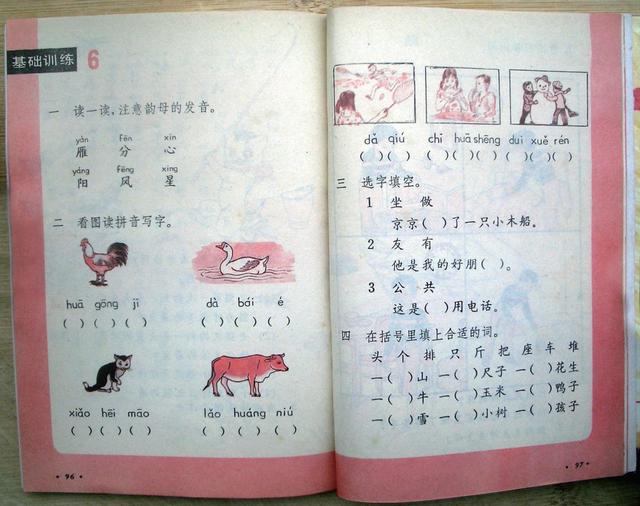 基础训练 6
一 读一读,注意韵母的发音。
yàn fēn xīn
雁 分 心
yáng fēng xīng
阳 风 星
二 看图读拼音写字。
huā gōng jī
( ) ( ) ( )
dà bái é
( ) ( ) ( )
xiǎo hēi māo
( ) ( ) ( )
lǎo huáng niú
( ) ( ) ( )
·96·
dǎ qiú
( ) ( )
chī huā shēng
( ) ( ) ( )
duī xuě rén
( ) ( ) ( )
三 选字填空。
1 坐 做
京京( )了一只小木船。
2 友 有
他是我的好朋( )。
3 公 共
这是( )用电话。
四 在括号里填上合适的词。
头 个 排 只 斤 把 座 车 堆
一( )山 一( )尺子 一( )花生
一( )牛 一( )玉米 一( )鸭子
一( )雪 一( )小树 一( )孩子
·97·